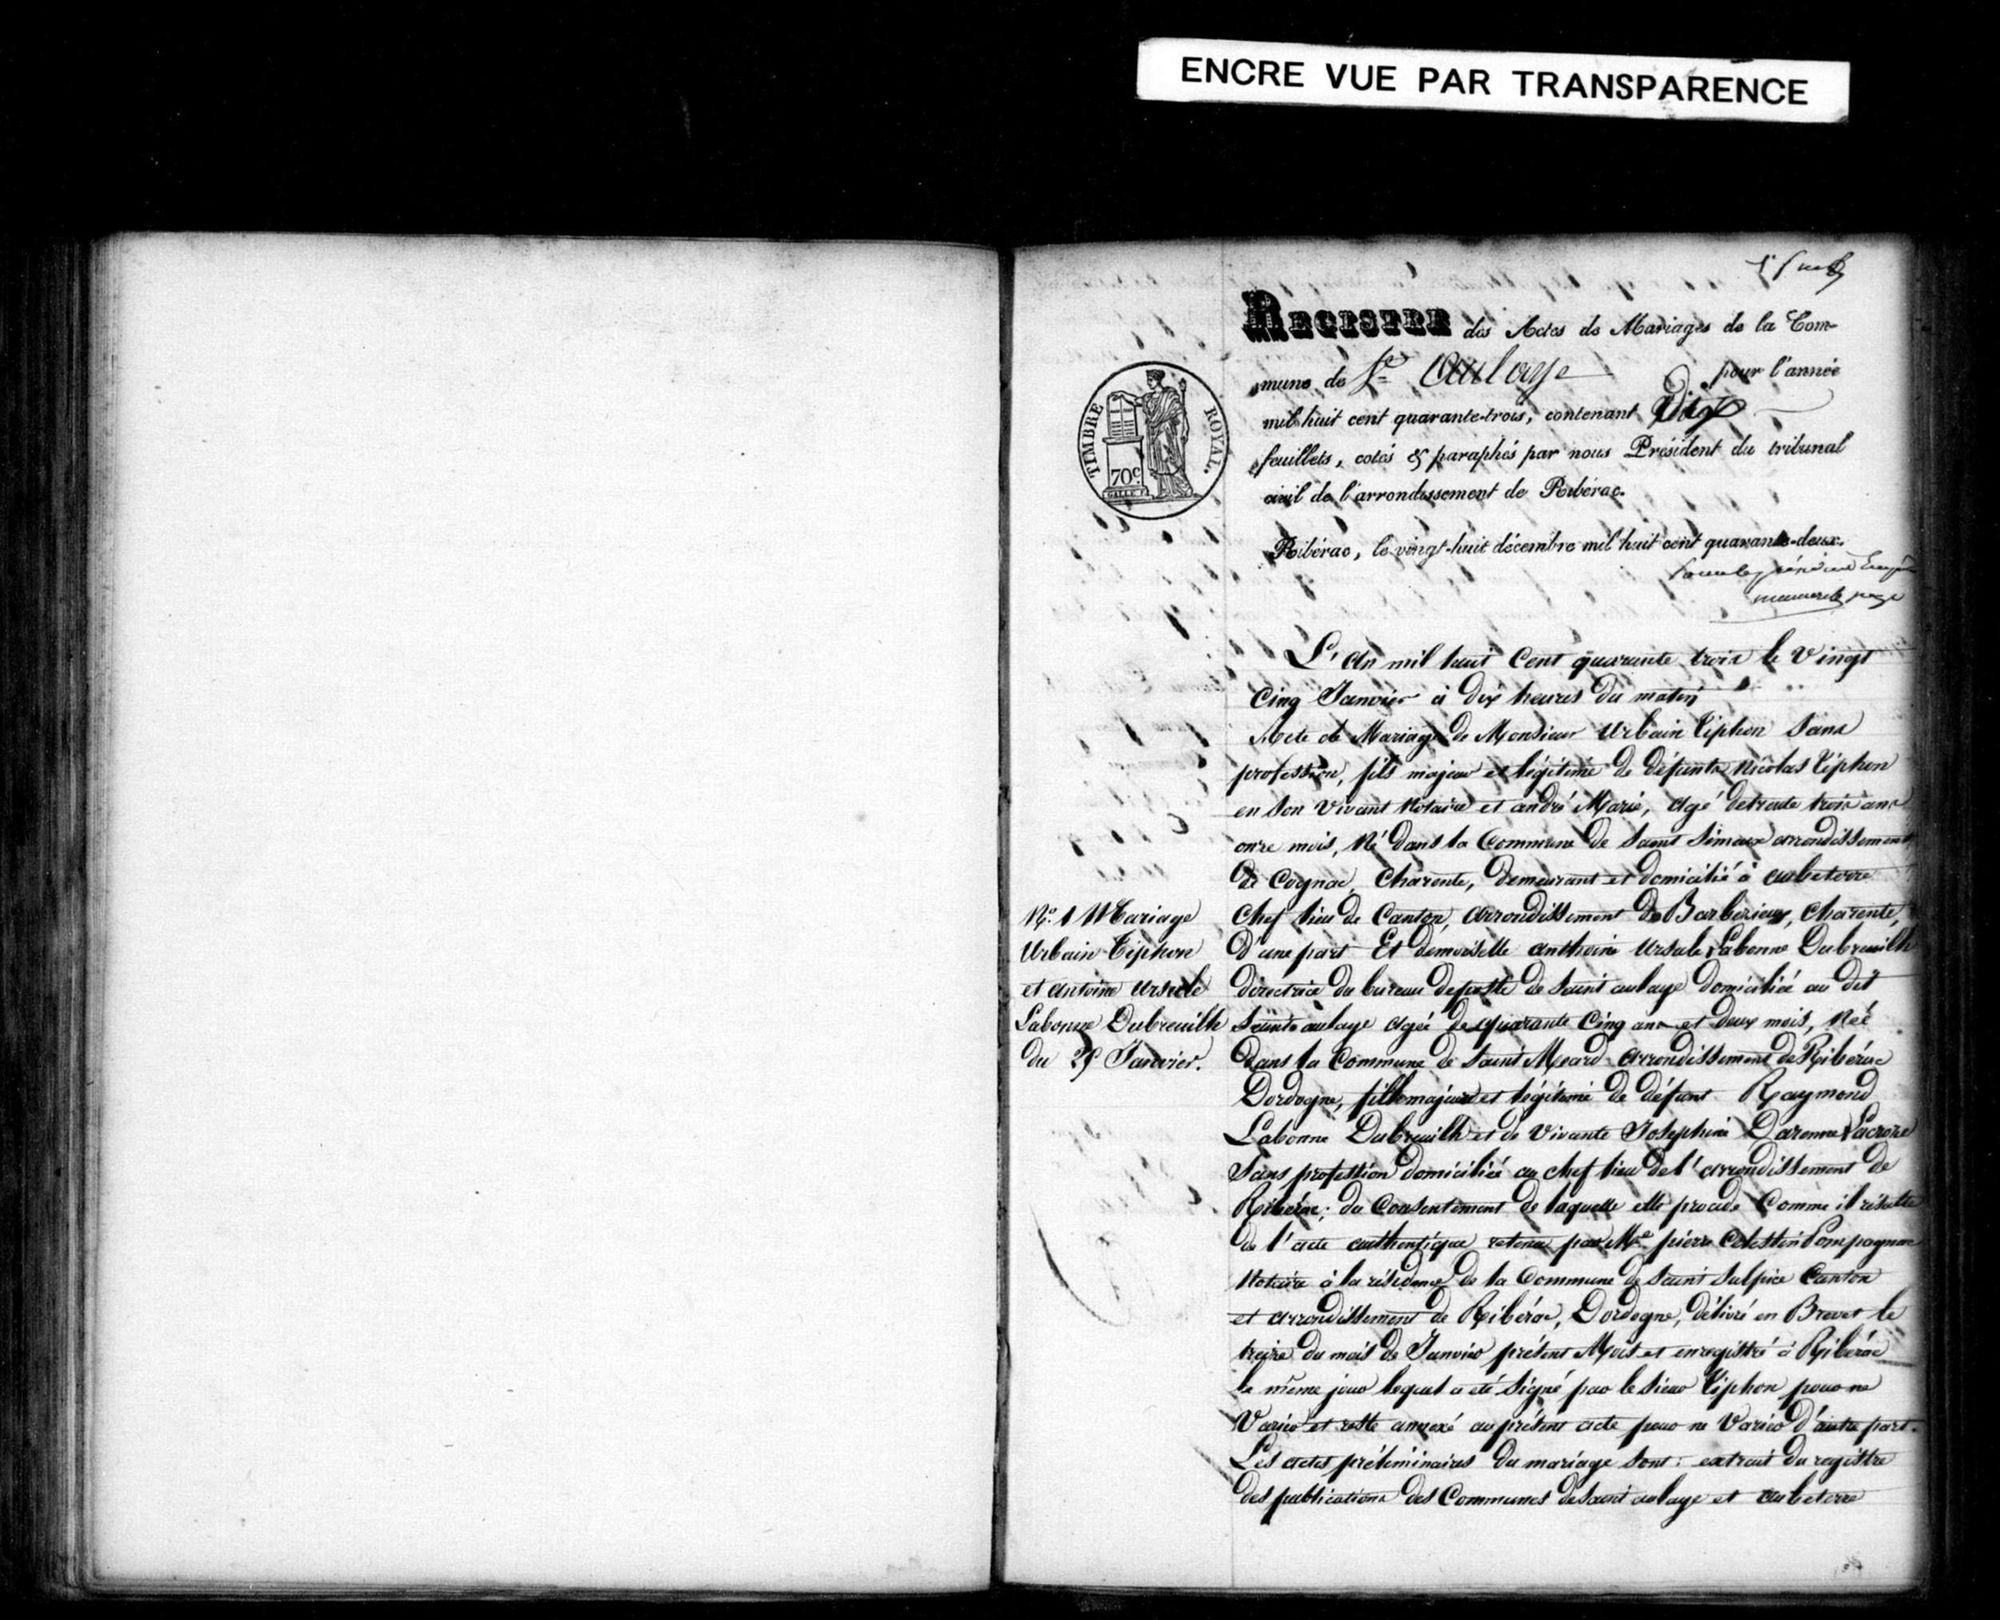 ENCRE VUE PAR TRANSPARENCE
REGISTRE des Actes de Mariages de la Com-
mune de Ste Aulaye pour l'année
mil huit cent quarante-trois, contenant Dix
feuillets, cotés & paraphés par nous Président du tribunal
civil de l'arrondissement de Ribérac.
Ribérac, le vingt-huit décembre mil huit cent quarante-deux.
TIMBRE ROYAL.
70c
GALLE F.
L'an mil huit Cent quarante trois le Vingt
Cinq Janvier à dix heures du matin
Acte de Mariage de Monsieur Urbain Tiphon Sans
profession, fils majeur et légitime de défunts Nicolas Tiphon
en Son Vivant Notaire et andré Marie, agé de trente trois ans
onze mois, Né dans la Commune de Saint Simeux arrondissement
de Cognac, Charente, demeurant et domicilié à aubeterre
Chef lieu de Canton, arrondissement de Barbezieux, Charente,
d'une part Et demoiselle anthoine Ursule Labonne Dubreuilh
directrice du bureau de poste de Saint aulaye domiciliée au dit
Sainte aulaye agée de quarante Cinq ans et deux mois, Née
dans la Commune de Saint Meard arrondissement de Ribérac
Dordogne, fille majeure et légitime de défunt Raymond
Labonne Dubreuilh et de Vivante Joséphine Daronne Lacroze
Sans profession domiciliée au chef lieu de l'arrondissement de
Ribérac; du Consentement de laquelle elle procède Comme il résulte
de l'acte authentique retenu par Me pierre Celestin Pompagnac
Notaire à la résidence de la Commune de Saint Sulpice Canton
et arrondissement de Ribérac, Dordogne, délivré en Brevet le
treize du mois de Janvier présent Mois et enregistré à Ribérac
le même jour lequel a été Signé par le Sieur Tiphon pour ne
Varier et reste annexé au présent acte pour ne Varier d'autre part.
Les actes préliminaires du mariage Sont: extrait du registre
des publications des Communes de Saint aulaye et aubeterre
No. 1 Mariage
Urbain Tiphon
et antoine Ursule
Labonne Dubreuilh
du 25 Janvier.